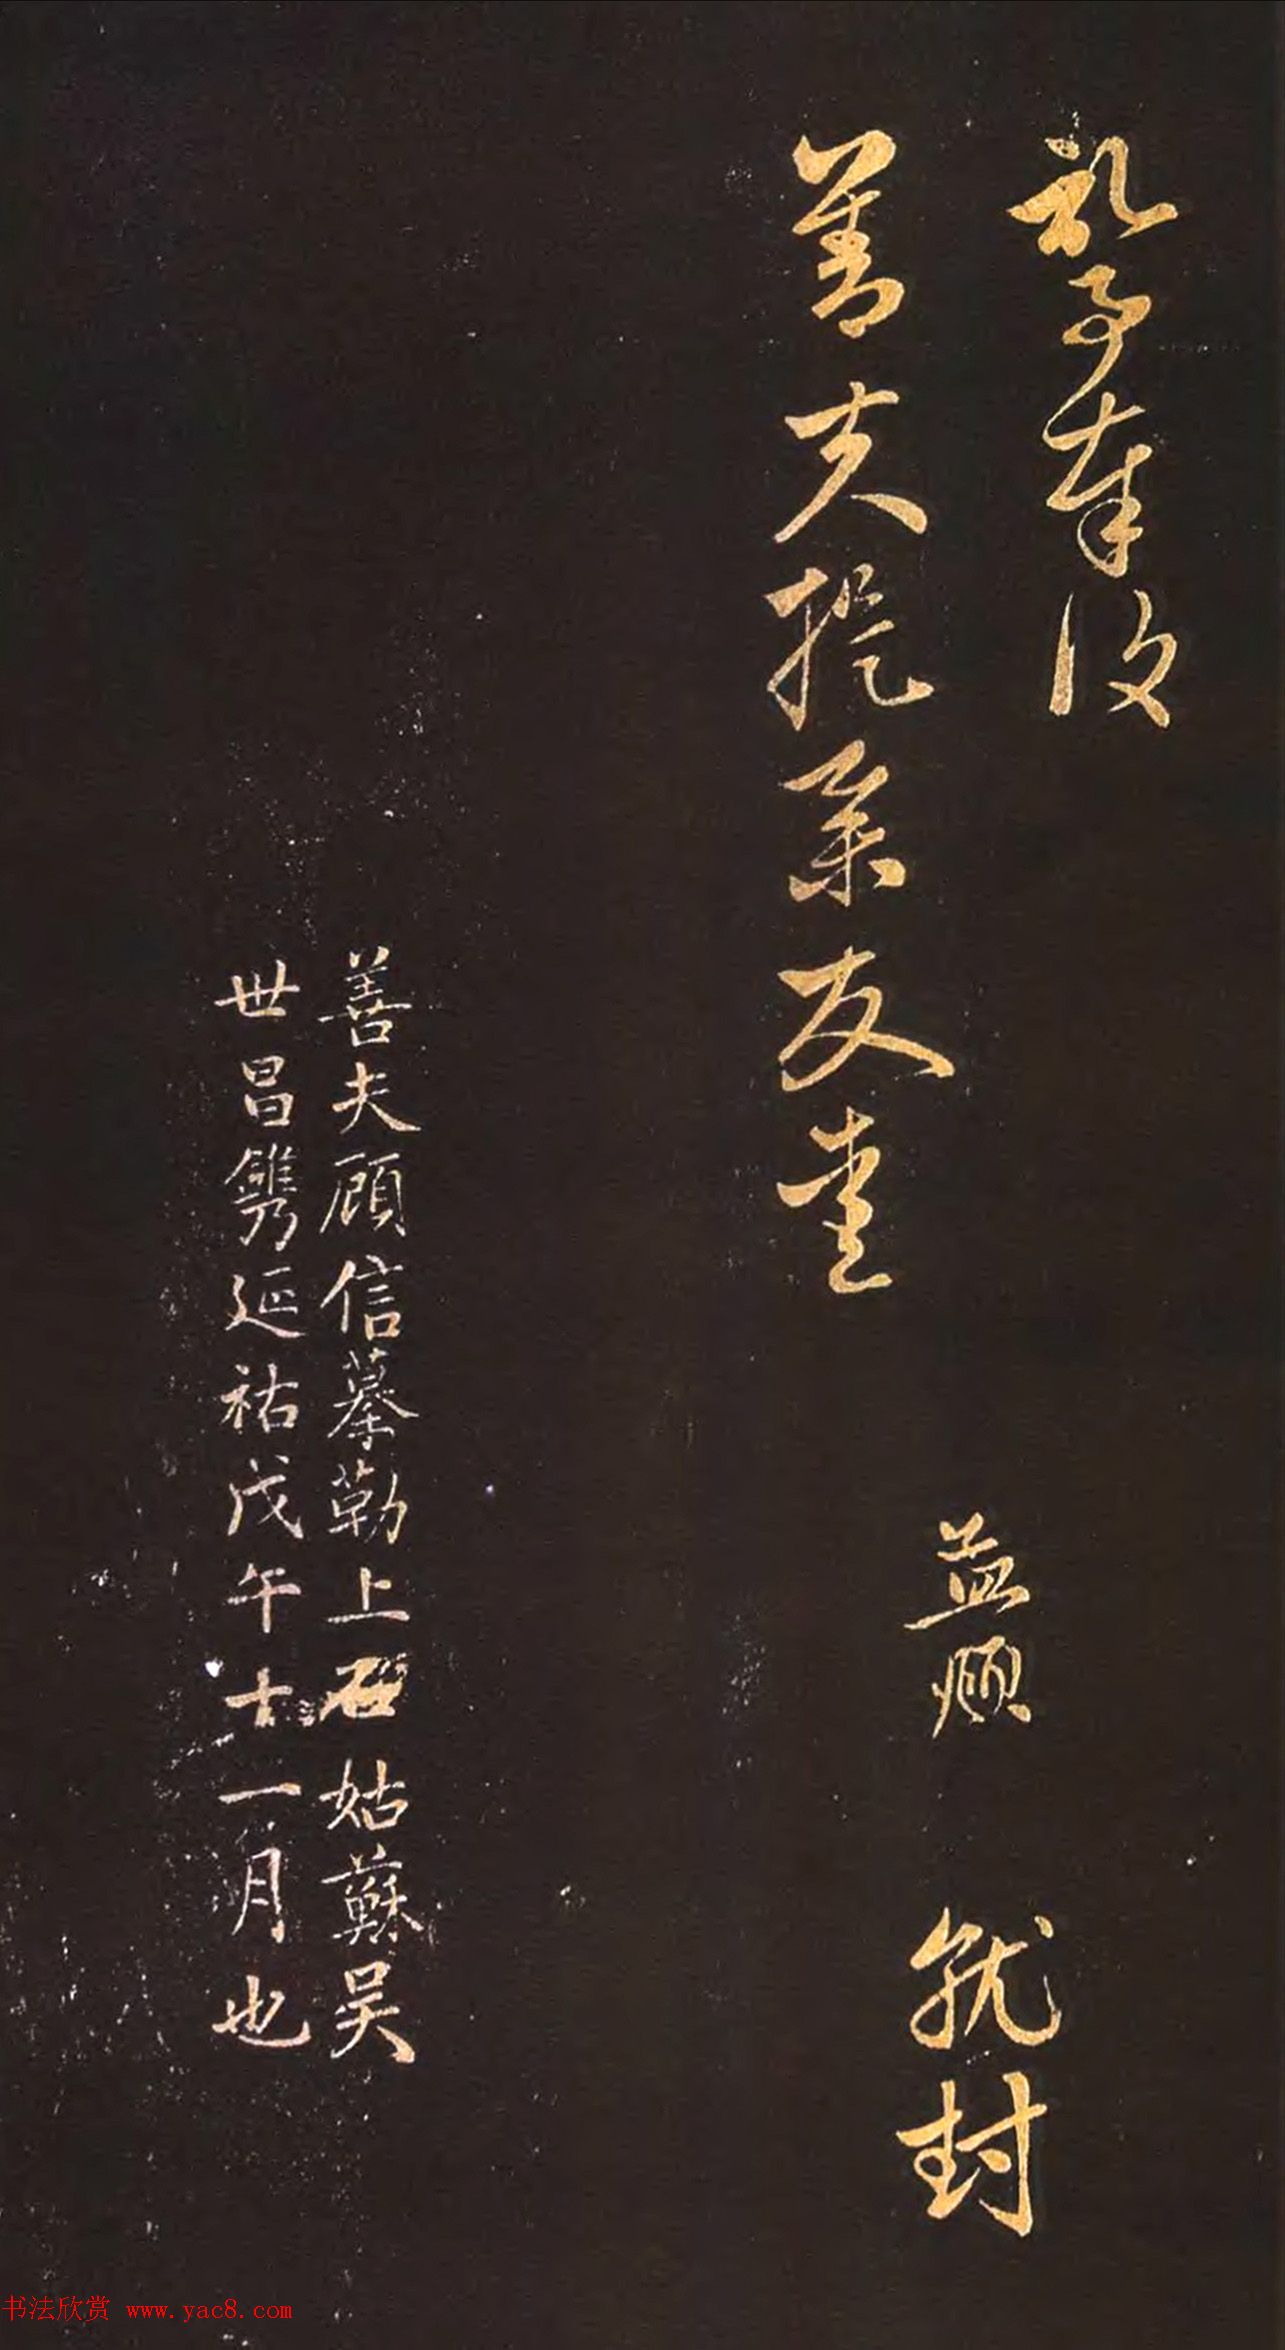 奉復
善夫提友
頫 封
善夫顧信摹勒上石姑蘇吳
世昌鐫延祐戊午十一月也
书法欣赏 www.yac8.com